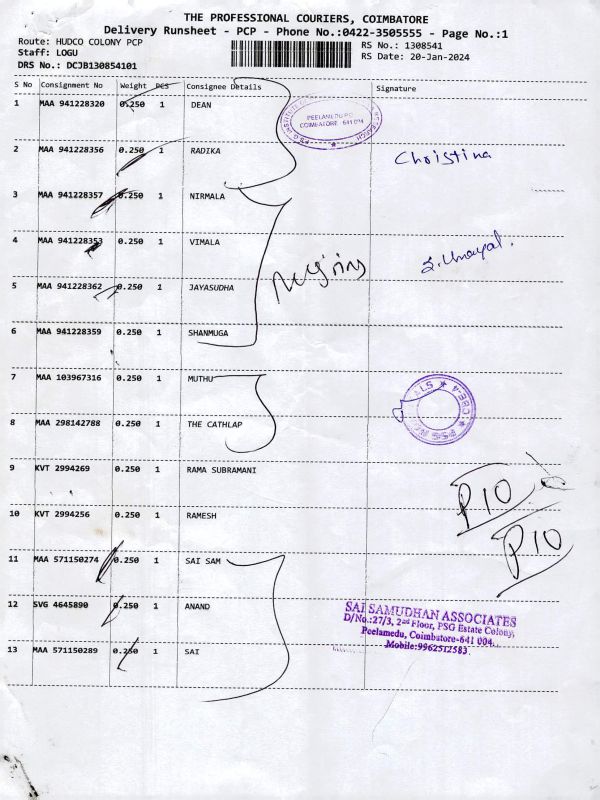 THE PROFESSIONAL COURIERS, COIMBATORE
Delivery Runsheet - PCP - Phone No.:0422-3505555 - Page No.:1
Route: HUDCO COLONY PCP
Staff: LOGU
DRS No.: DCJB130854101
RS No.: 1308541
RS Date: 20-Jan-2024
S No Consignment No Weight PCS Consignee Details Signature
1 MAA 941228320 0.250 1 DEAN
PEELAMEDU PO
COIMBATORE - 641 004
2 MAA 941228356 0.250 1 RADIKA Christina
3 MAA 941228357 0.250 1 NIRMALA
4 MAA 941228353 0.250 1 VIMALA
5 MAA 941228362 0.250 1 JAYASUDHA
6 MAA 941228359 0.250 1 SHANMUGA
7 MAA 103967316 0.250 1 MUTHU
8 MAA 298142788 0.250 1 THE CATHLAP
9 KVT 2994269 0.250 1 RAMA SUBRAMANI
P10
10 KVT 2994256 0.250 1 RAMESH
P10
11 MAA 571150274 0.250 1 SAI SAM
12 SVG 4645890 0.250 1 ANAND
SAI SAMUDHAN ASSOCIATES
D/No.:27/3, 2nd Floor, PSG Estate Colony,
Peelamedu, Coimbatore-641 004.
Mobile:9962512583
13 MAA 571150289 0.250 1 SAI